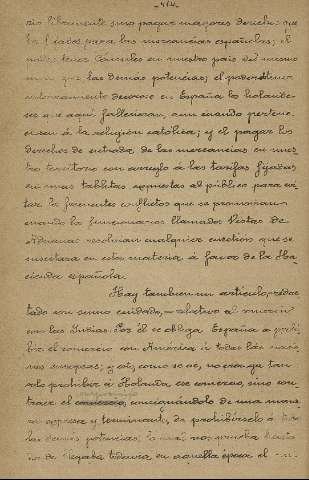 -414-
rio libremente sino pagar mayores derechos que
los fijados para las mercancias españolas; el
poder tener Cónsules en nuestro pais del mismo
modo que las demas potencias; el poder
enterramiento decoroso en España los holande-
ses que aquí fallecieran, aun cuando pertene-
ciesen á la religión católica; y el pagar los
derechos de entrada de las mercancias en nues-
tro territorio con arreglo á las tarifas fijadas
en unas tablitas expuestas al público para evi-
tar los frecuentes conflictos que se promovian
cuando los funcionarios llamados Vistas de
Aduana resolvian cualquier cuestión que se
suscitara en esta materia á favor de la Ha-
cienda española.
Hay tambien un articulo, redac-
tado con sumo cuidado, relativo al comercio
con las Indias. Por él se obliga España á prohi-
bir el comercio con América á todas las nacio-
nes europeas; y así, como se ve, no consigna tan
solo prohibir á Holanda ese comercio, sino con-
traer el consignándolo de una mane-
ra expresa y terminante, de prohibírselo á
las demas potencias; lo cual nos prueba hasta
donde llegaba todavia en aquella época el